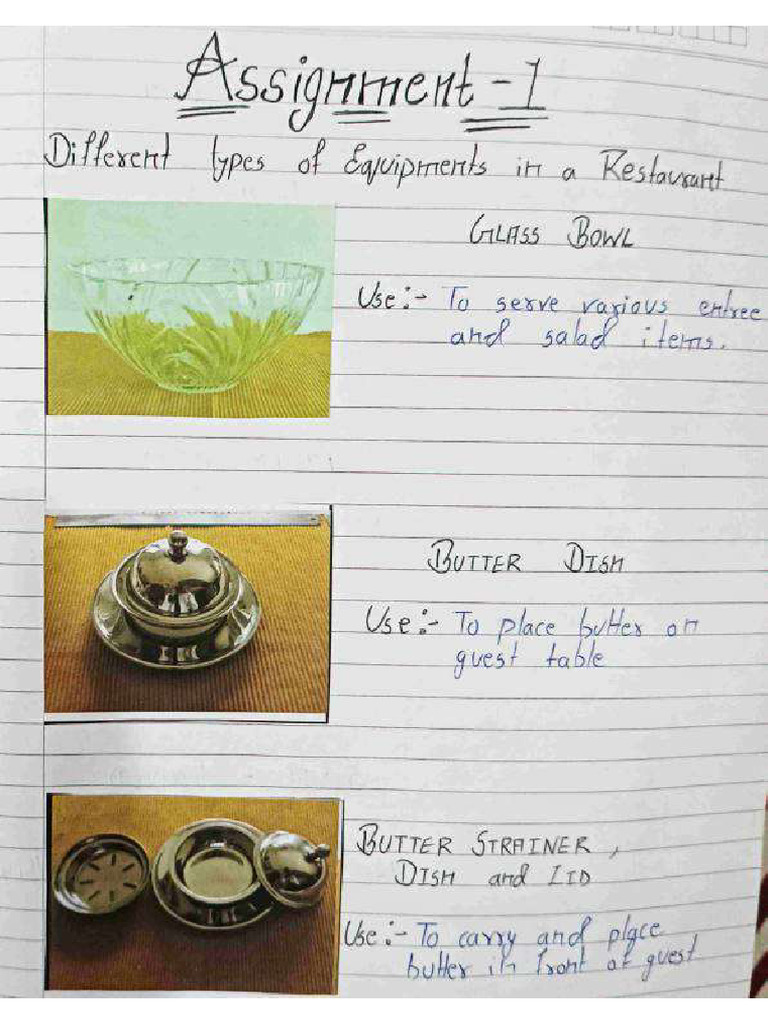 Assignment-1
Different types of Equipments in a Restaurant
GLASS BOWL
Use:- To serve various entree
and salad items.
BUTTER DISH
Use:- To place butter on
guest table
BUTTER STRAINER,
DISH and LID
Use:- To carry and place
butter in front of guest